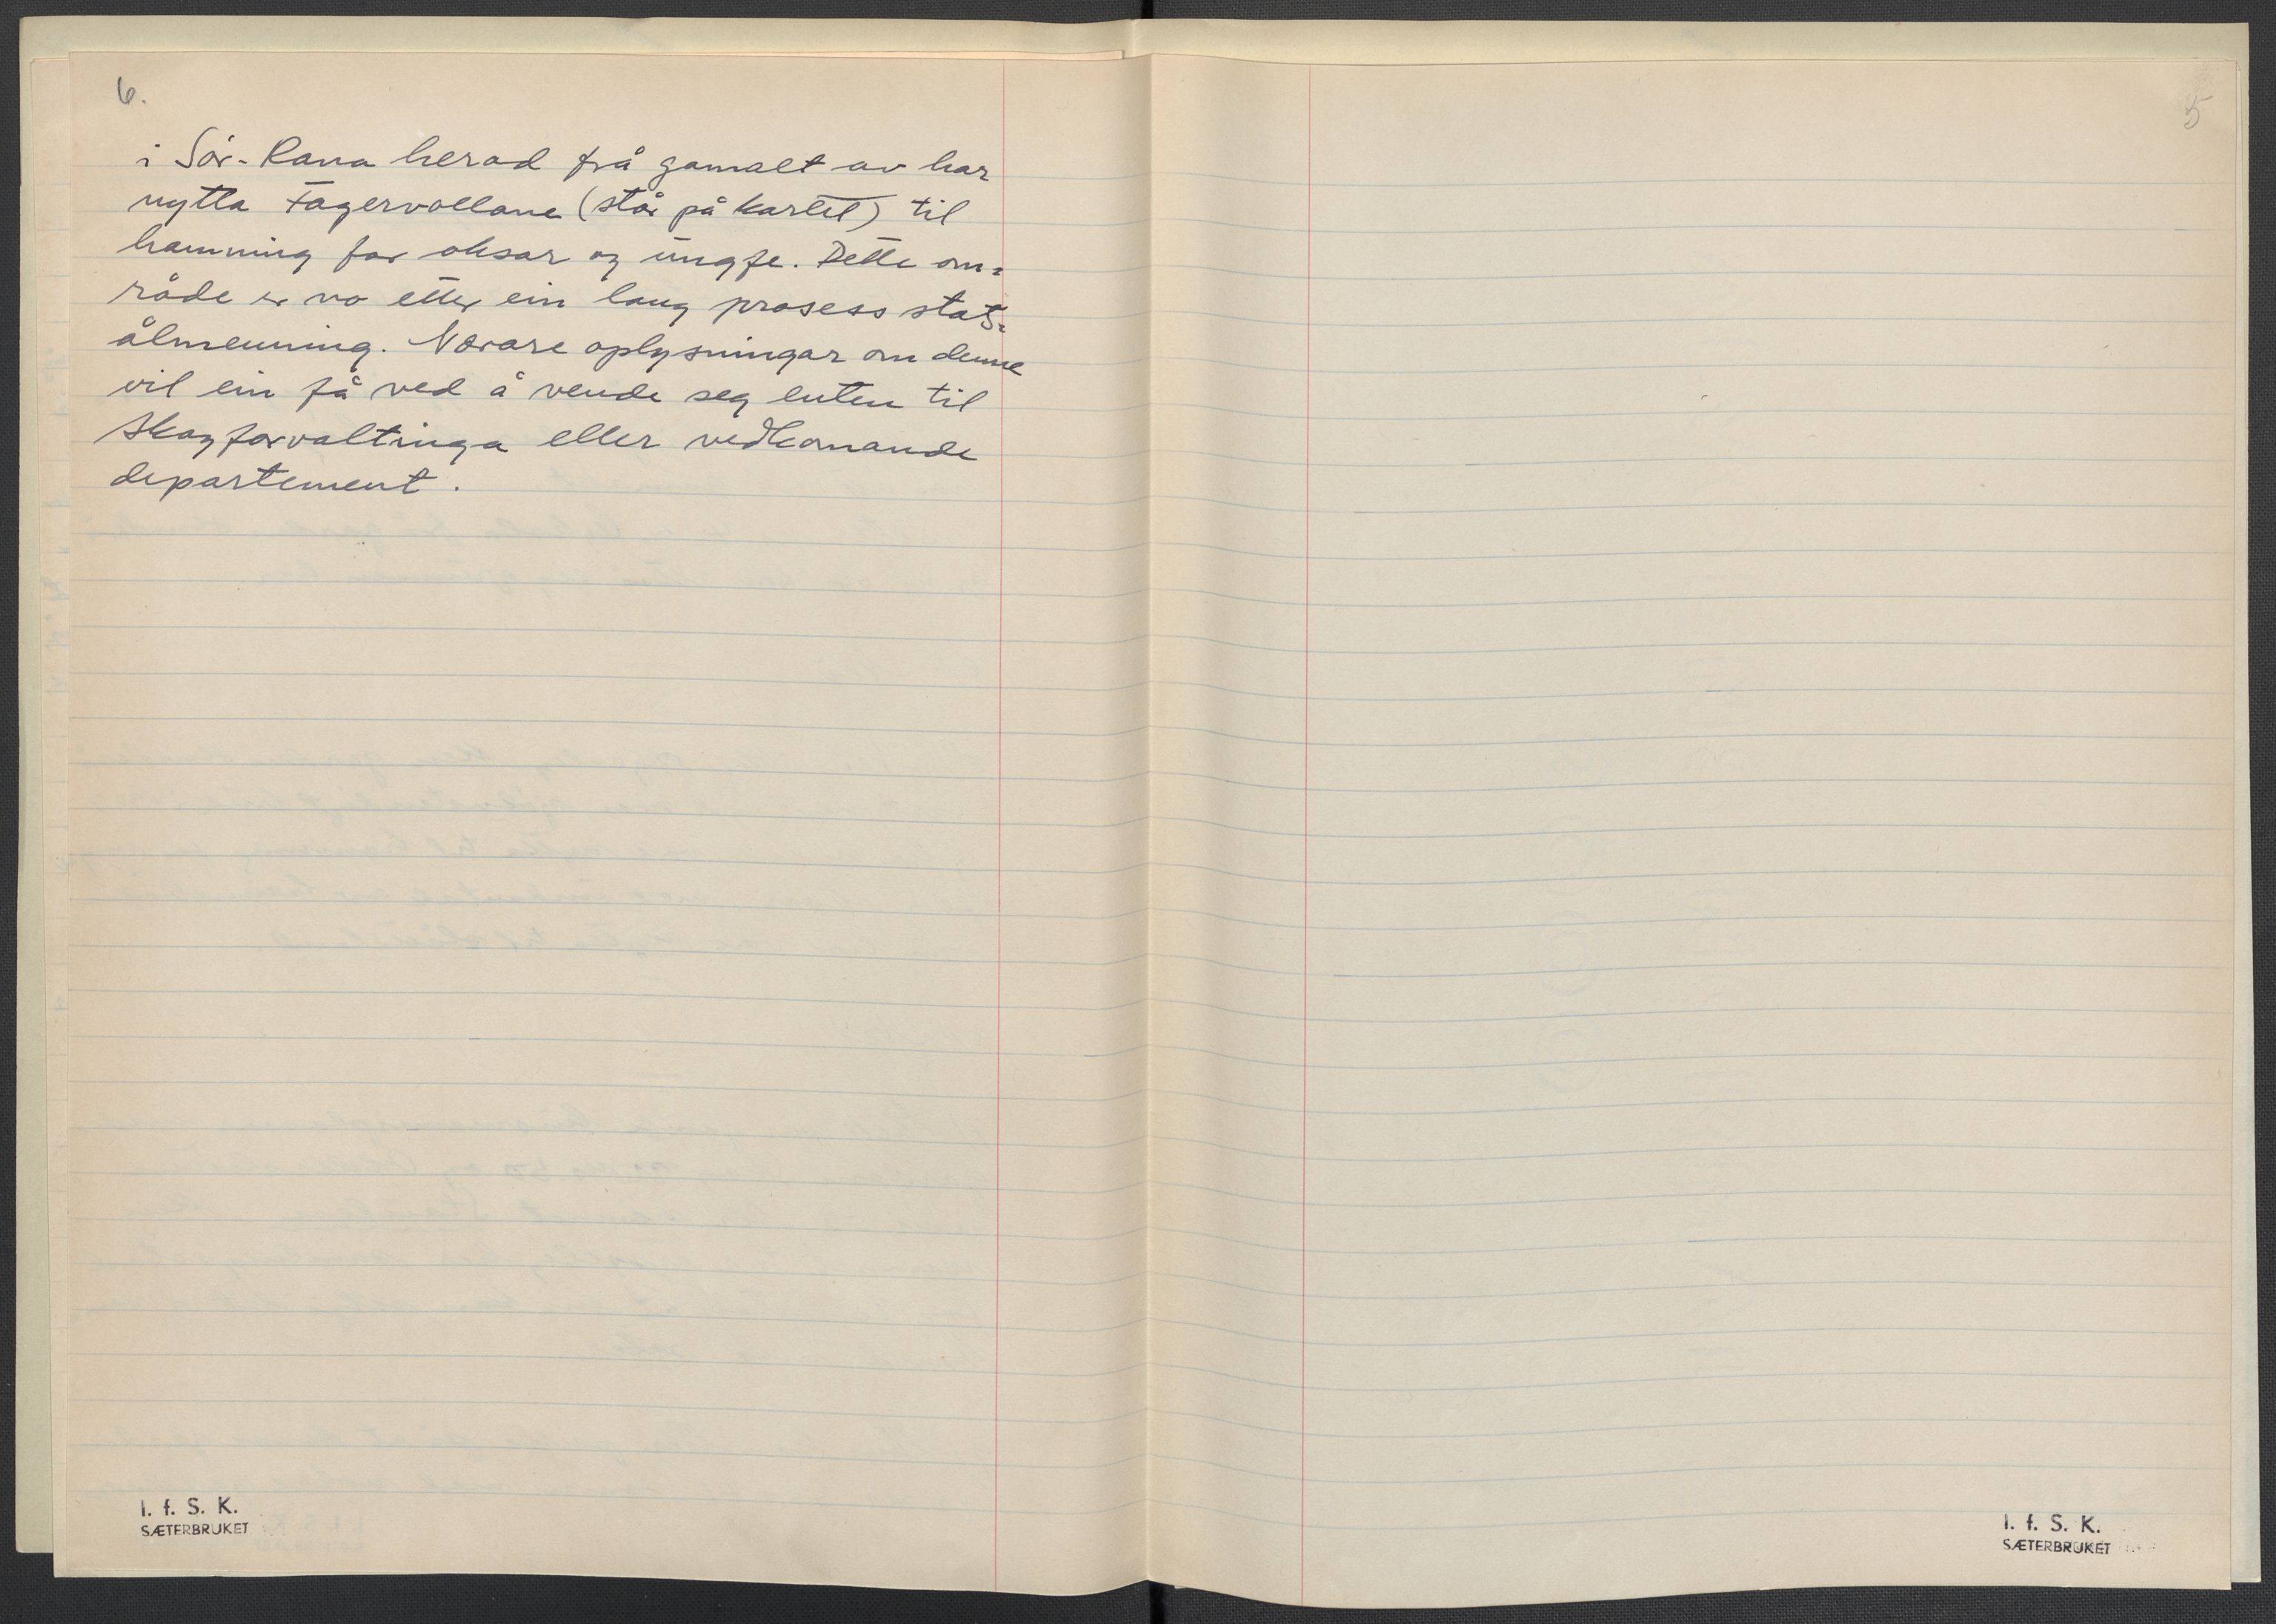 6.
i Sör-Rana herad frå gamalt av har
nytta Fagervollane (står på kartet) til
hamning for oksar og ungfe. Dette om=
råde er no etter ein lang prosess stats=
ålmenning. Nærare oplysningar om denne
vil ein få ved å vende seg enten til
Skogforvaltninga eller vedkomande
departement.
I. f. S. K.
SÆTERBRUKET
5
I. f. S. K.
SÆTERBRUKET